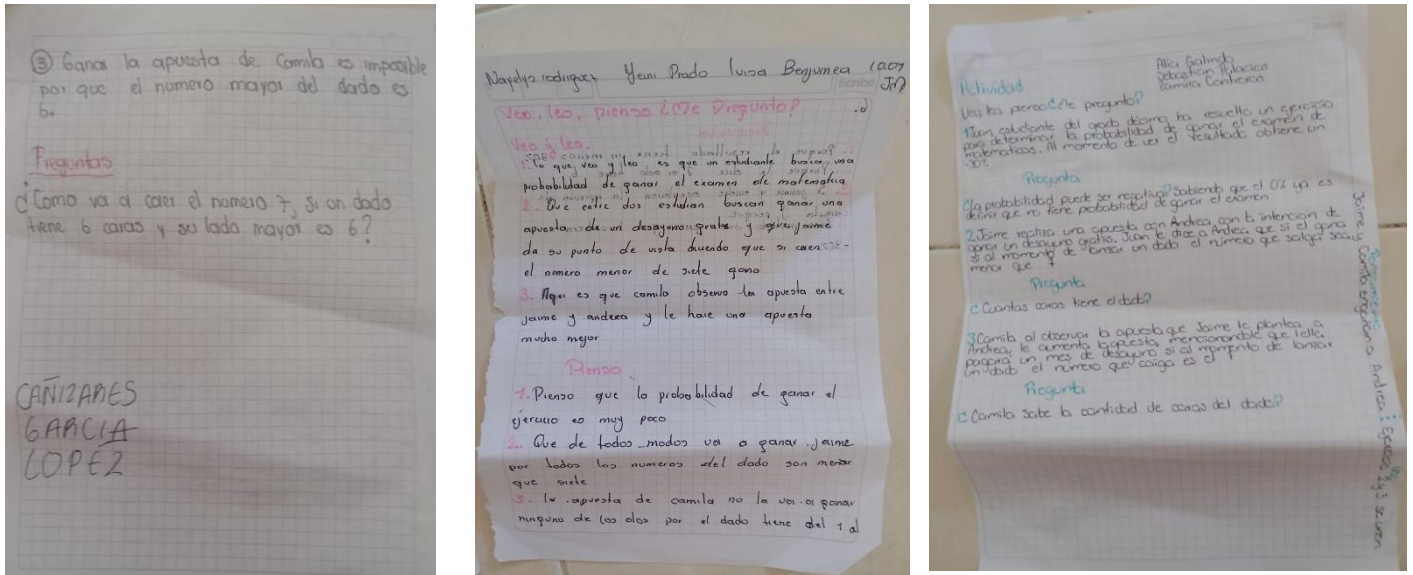 ③ Ganar la apuesta de Camila es imposible
por que el numero mayor del dado es
6.
Preguntas
¿Como va a caer el numero 7, si un dado
tiene 6 caras y su lado mayor es 6?
CAÑIZARES
GARCIA
LOPEZ
Nayelys rodriguez Yeini Prado luisa Benjumea 10.07
JM
Veo, leo, pienso ¿Me Pregunto?
Veo y leo.
1. Lo que veo y leo es que un estudiante busca una
probabilidad de ganar el examen de matematica
2. Que entre dos estudian buscan ganar una
apuesta de un desayuno gratis y que jaime
da su punto de vista diciendo que si caen
el numero menor de siete gano
3. Aqui es que camilo observo la apuesta entre
jaime y andrea y le hace una apuesta
mucho mejor
Pienso
1. Pienso que la probabilidad de ganar el
ejercicio es muy poco
2. Que de todos modos va a ganar jaime
por todos los numeros del dado son menor
que siete
3. la apuesta de camila no la va a ganar
ninguno de los dos por el dado tiene del 1 al
Alici Galindo
Sebastian Palacios
Zamira Contreras
Actividad
Veo leo pienso ¿Me pregunto?
1 un estudiante del grado décimo ha resuelto un ejercicio
para determinar la probabilidad de ganar el examen de
matematicas. Al momento de ver el resultado obtiene un
-30%.
Pregunta
¿la probabilidad puede ser negativa? Sabiendo que el 0% ya es
definir que no tiene probabilidad de ganar el examen
2 Jaime realiza una apuesta con Andrea con la intencion de
ganar un desayuno gratis. Juan le dice a Andrea que si el gana
si al momento de lanzar un dado el número que salga sea
menor que 7
Pregunta
¿Cuantas caras tiene el dado?
3 Camila al observar la apuesta que Jaime le plantea a
Andrea, le aumenta la apuesta, mencionandole que le
pagará un mes de desayuno si al momento de lanzar
un dado el número que caiga es el
Pregunta
¿Camila sabe la cantidad de caras del dado?
Jaime y Camila engañan a Andrea: Ejercicio 2 y 3 se unen